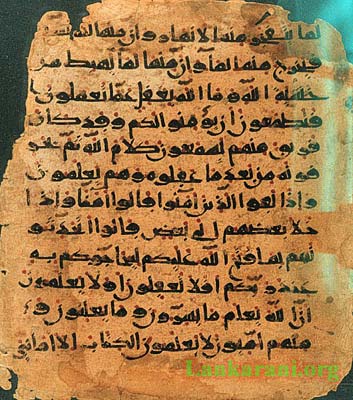 لما يتفجر منه الانهار وان منها لما يشقق
فيخرج منه الما وان منها لما يهبط من
خشية الله وما الله بغفل عما تعملون
افتطمعون ان يؤمنوا لكم وقد كان
فريق منهم يسمعون كلام الله ثم يحر
فونه من بعد ما عقلوه وهم يعلمون
واذا لقوا الذين امنوا قالوا امنا واذا
خلا بعضهم الى بعض قالوا اتحدثو
نهم بما فتح الله عليكم ليحاجوكم به
عند ربكم افلا تعقلون اولا يعلمون
ان الله يعلم ما يسرون وما يعلنون و
منهم اميون لا يعلمون الكتاب الا اماني
Lankarani.org